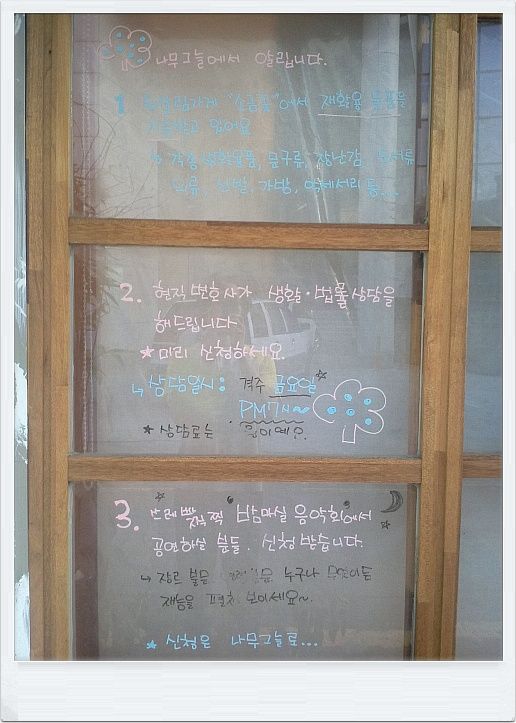 나무그늘에서 알립니다.
1. 되살림가게 "소금꽃"에서 재활용 물품을
기증받고 있어요
↳ 각종 생활용품, 문구류, 장난감, 도서류
의류, 신발, 가방, 악세서리 등...
2. 현직변호사가 생활·법률상담을
해드립니다
★ 미리 신청하세요.
↳ 상담일시: 격주 금요일
PM7시~
★ 상담료는 힘이예요.
3. 쓰레빠찍찍 밤마실 음악회에서
공연하실 분들. 신청 받습니다.
↳ 장르 불문 누구나 무엇이든
재능을 펼쳐 보이세요~
★ 신청은 나무그늘로...